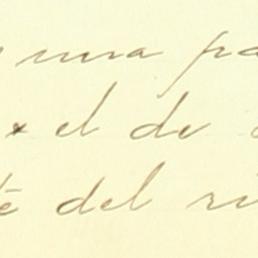 una pa
el de
te del